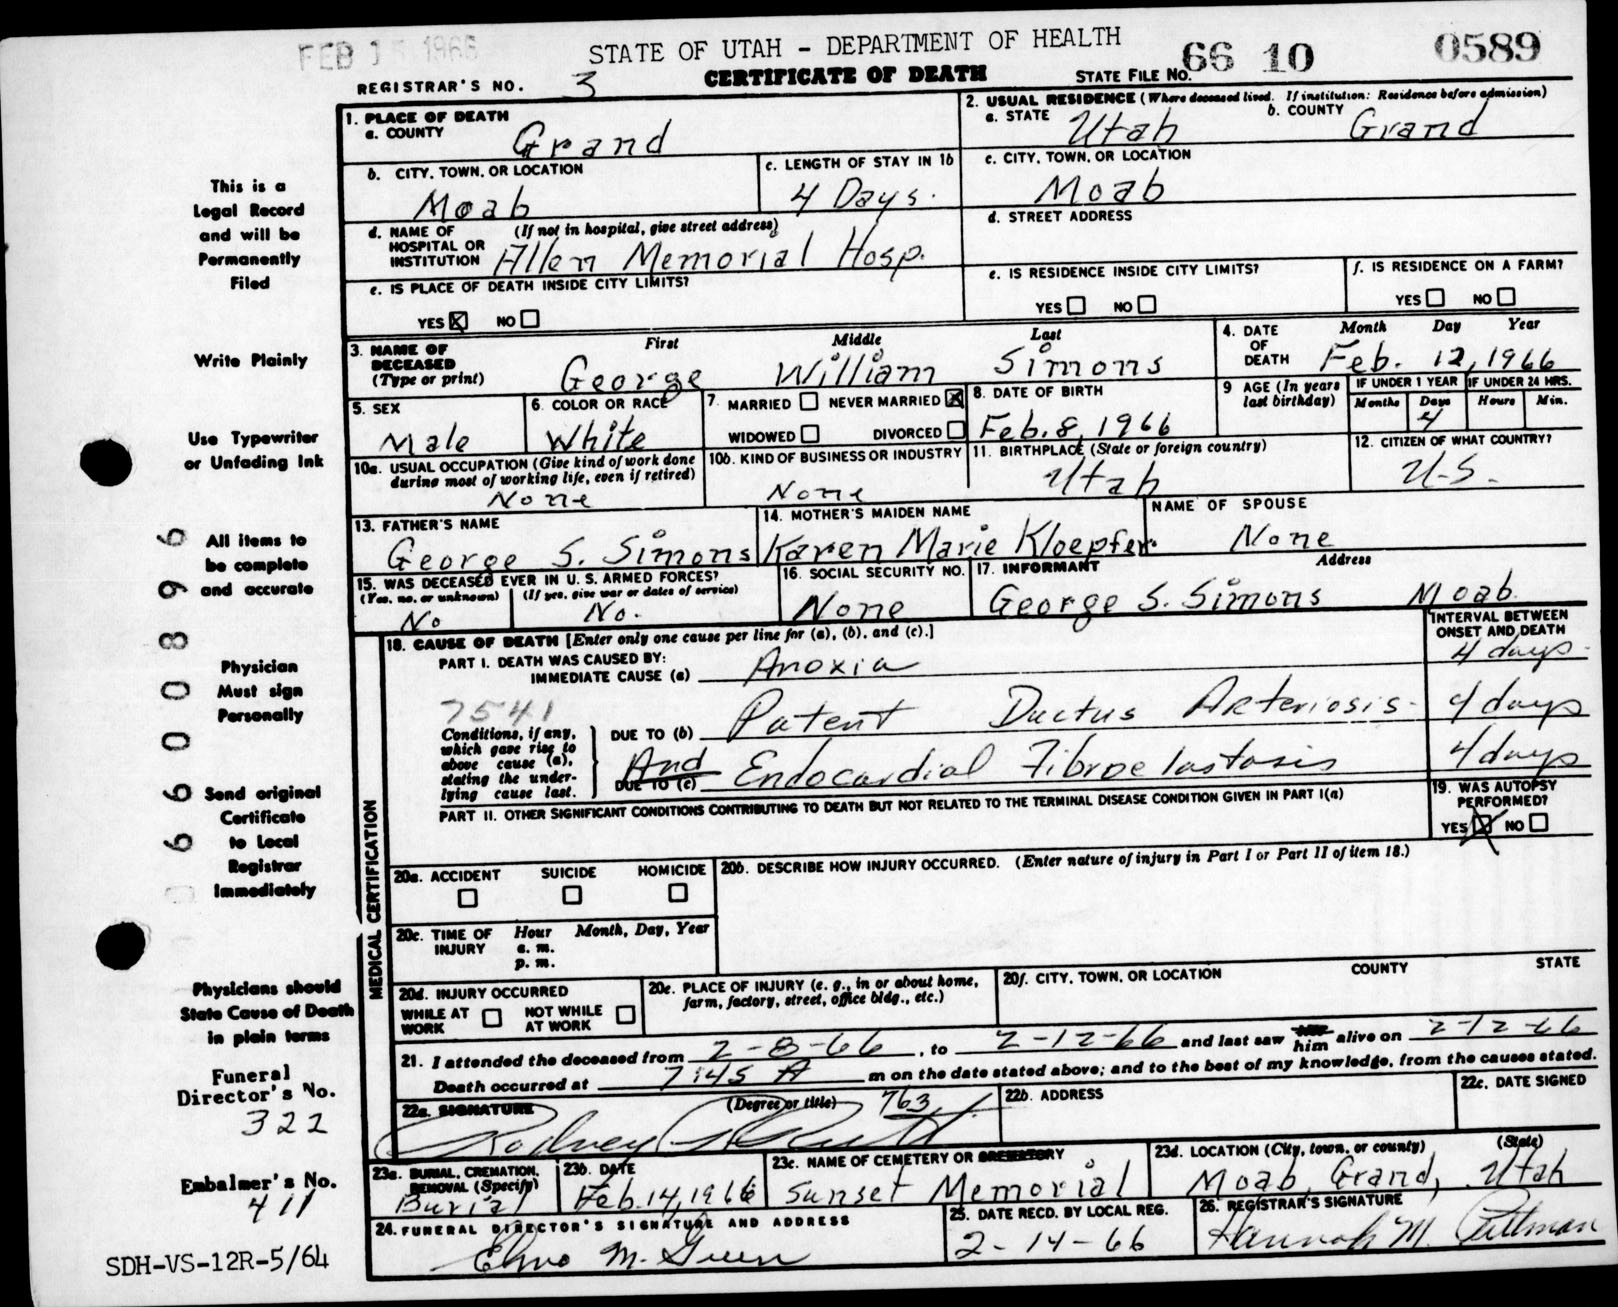 FEB 15 1966
STATE OF UTAH - DEPARTMENT OF HEALTH
CERTIFICATE OF DEATH
REGISTRAR'S NO. 3
STATE FILE NO. 66 10 0589
1. PLACE OF DEATH
a. COUNTY Grand
2. USUAL RESIDENCE (Where deceased lived. If institution: Residence before admission)
a. STATE Utah b. COUNTY Grand
b. CITY, TOWN, OR LOCATION Moab
c. LENGTH OF STAY IN 1b 4 Days.
c. CITY, TOWN, OR LOCATION Moab
d. NAME OF HOSPITAL OR INSTITUTION (If not in hospital, give street address) Allen Memorial Hosp.
d. STREET ADDRESS
e. IS PLACE OF DEATH INSIDE CITY LIMITS?
YES NO
e. IS RESIDENCE INSIDE CITY LIMITS?
YES NO
f. IS RESIDENCE ON A FARM?
YES NO
3. NAME OF DECEASED (Type or print)
First Middle Last
George William Simons
4. DATE OF DEATH Month Day Year
Feb. 12, 1966
5. SEX Male
6. COLOR OR RACE White
7. MARRIED NEVER MARRIED
WIDOWED DIVORCED
8. DATE OF BIRTH Feb. 8, 1966
9 AGE (In years last birthday)
IF UNDER 1 YEAR IF UNDER 24 HRS.
Months Days Hours Min.
4
10a. USUAL OCCUPATION (Give kind of work done during most of working life, even if retired) None
10b. KIND OF BUSINESS OR INDUSTRY None
11. BIRTHPLACE (State or foreign country) Utah
12. CITIZEN OF WHAT COUNTRY? U.S.
13. FATHER'S NAME George S. Simons
14. MOTHER'S MAIDEN NAME Karen Marie Kloepfer
NAME OF SPOUSE None
15. WAS DECEASED EVER IN U. S. ARMED FORCES?
(Yes, no, or unknown) No
(If yes, give war or dates of service) No.
16. SOCIAL SECURITY NO. None
17. INFORMANT Address
George S. Simons Moab
MEDICAL CERTIFICATION
18. CAUSE OF DEATH [Enter only one cause per line for (a), (b), and (c).]
INTERVAL BETWEEN ONSET AND DEATH
PART I. DEATH WAS CAUSED BY:
IMMEDIATE CAUSE (a) Anoxia 4 days
7541
Conditions, if any, which gave rise to above cause (a), stating the underlying cause last.
DUE TO (b) Patent Ductus Arteriosis 4 days
And DUE TO (c) Endocardial Fibroelastosis 4 days
PART II. OTHER SIGNIFICANT CONDITIONS CONTRIBUTING TO DEATH BUT NOT RELATED TO THE TERMINAL DISEASE CONDITION GIVEN IN PART I(a)
19. WAS AUTOPSY PERFORMED?
YES NO
20a. ACCIDENT SUICIDE HOMICIDE
20b. DESCRIBE HOW INJURY OCCURRED. (Enter nature of injury in Part I or Part II of item 18.)
20c. TIME OF INJURY Hour Month, Day, Year
a. m.
p. m.
20d. INJURY OCCURRED
WHILE AT WORK NOT WHILE AT WORK
20e. PLACE OF INJURY (e. g., in or about home, farm, factory, street, office bldg., etc.)
20f. CITY, TOWN, OR LOCATION COUNTY STATE
21. I attended the deceased from 2-8-66, to 2-12-66 and last saw him alive on 2-12-66
Death occurred at 7:45 A m on the date stated above; and to the best of my knowledge, from the causes stated.
22a. SIGNATURE (Degree or title) 763
Rodney
22b. ADDRESS
22c. DATE SIGNED
23a. BURIAL, CREMATION, REMOVAL (Specify) Burial
23b. DATE Feb. 14, 1966
23c. NAME OF CEMETERY OR CREMATORY Sunset Memorial
23d. LOCATION (City, town, or county) (State)
Moab, Grand, Utah
24. FUNERAL DIRECTOR'S SIGNATURE AND ADDRESS
Elmo M. Green
25. DATE RECD. BY LOCAL REG. 2-14-66
26. REGISTRAR'S SIGNATURE Hannah M. Pittman
This is a
Legal Record
and will be
Permanently
Filed
Write Plainly
Use Typewriter
or Unfading Ink
All items to
be complete
and accurate
Physician
Must sign
Personally
Send original
Certificate
to Local
Registrar
Immediately
Physicians should
State Cause of Death
in plain terms
Funeral
Director's No.
322
Embalmer's No.
411
SDH-VS-12R-5/64
0 6 6 0 0 8 9 6